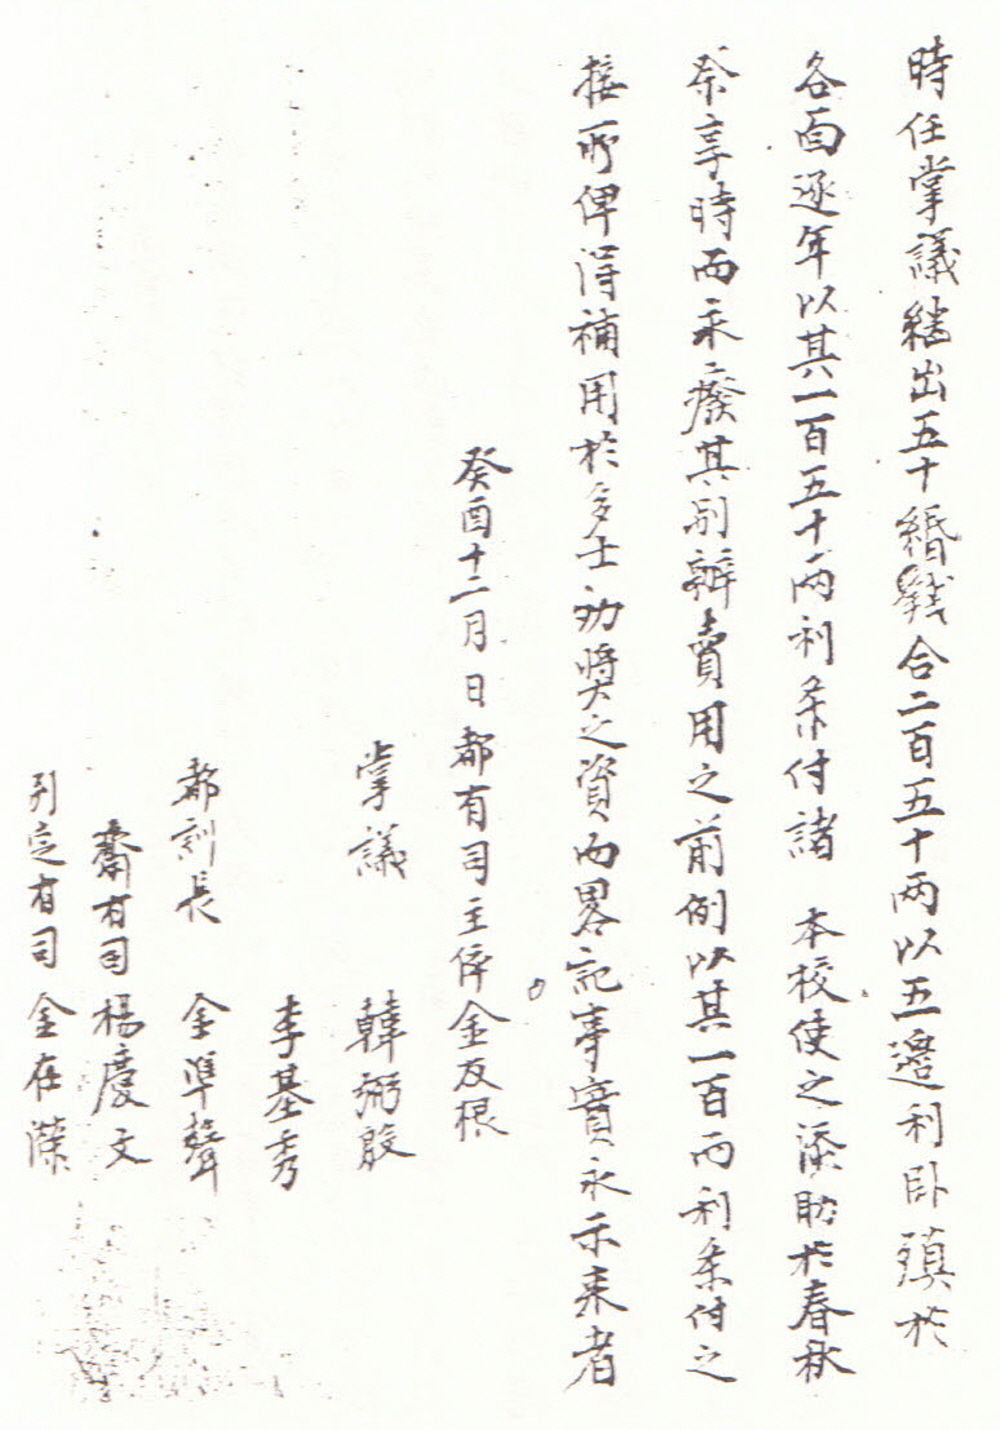 時任掌議繼出五十緡錢合二百五十両以五邊利卧殖於
各面逐年以其一百五十両利条付諸 本校使之添助於春秋
祭享時而永廢其別辦賣用之前例以其一百両利条付之
接所俾得補用於多士劝獎之資而畧記事實永示来者
癸酉十二月 日 都有司主倅金友根
掌議 韓弼殷
李基秀
都訓長 金準聲
齋有司 楊慶文
別定有司 金在